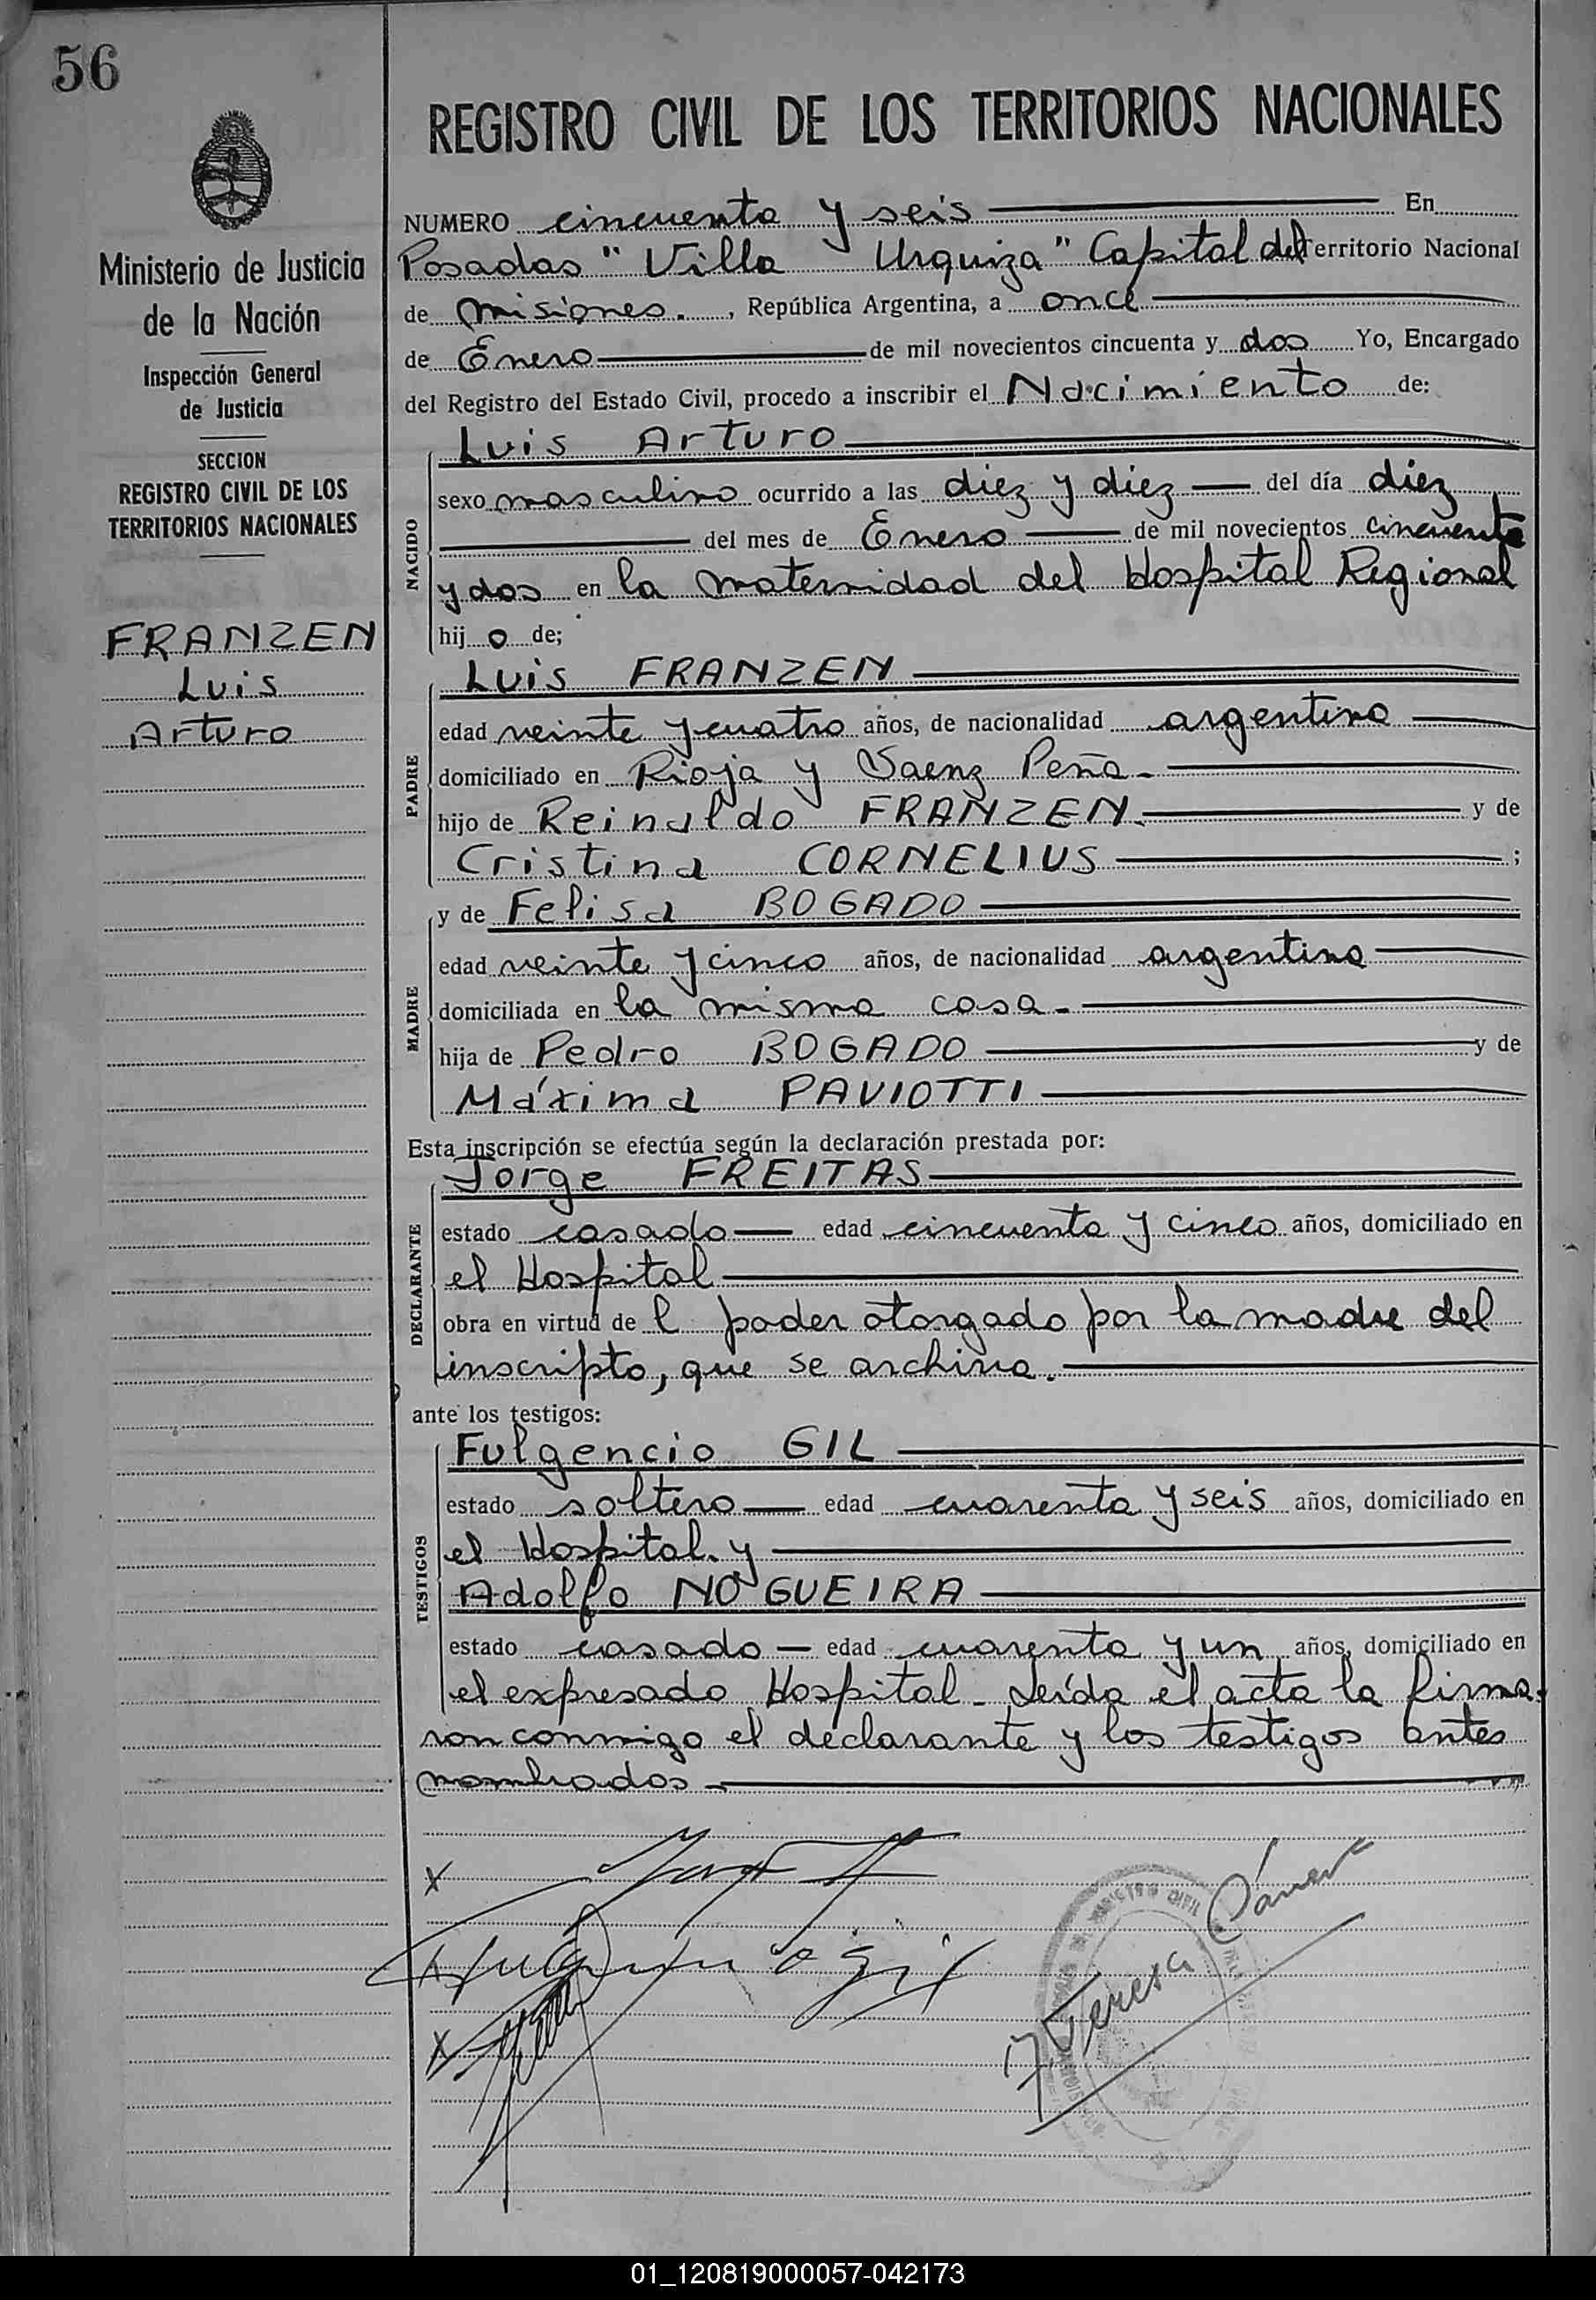 56
REGISTRO CIVIL DE LOS TERRITORIOS NACIONALES
Ministerio de Justicia
de la Nación
Inspección General
de Justicia
SECCION
REGISTRO CIVIL DE LOS
TERRITORIOS NACIONALES
FRANZEN
Luis
Arturo
NUMERO cincuenta y seis En
Posadas "Villa Urquiza" Capital del Territorio Nacional
de Misiones. , República Argentina, a once
de Enero de mil novecientos cincuenta y dos Yo, Encargado
del Registro del Estado Civil, procedo a inscribir el Nacimiento de:
NACIDO
Luis Arturo
sexo masculino ocurrido a las diez y diez del día diez
del mes de Enero de mil novecientos cincuenta
y dos en la maternidad del Hospital Regional
hij o de;
PADRE
Luis FRANZEN
edad veinte y cuatro años, de nacionalidad argentina
domiciliado en Rioja y Saenz Peña-
hijo de Reinaldo FRANZEN. y de
Cristina CORNELIUS ;
MADRE
y de Felisa BOGADO
edad veinte y cinco años, de nacionalidad argentina
domiciliada en la misma casa-
hija de Pedro BOGADO y de
Máxima PAVIOTTI
Esta inscripción se efectúa según la declaración prestada por:
DECLARANTE
Jorge FREITAS
estado casado edad cincuenta y cinco años, domiciliado en
el Hospital
obra en virtud de l poder otorgado por la madre del
inscripto, que se archiva.
ante los testigos:
TESTIGOS
Fulgencio GIL
estado soltero edad cuarenta y seis años, domiciliado en
el Hospital. y
Adolfo NOGUEIRA
estado casado edad cuarenta y un años, domiciliado en
el expresado Hospital- Leída el acta la firma-
ron conmigo el declarante y los testigos antes
nombrados-
X
X
Teresa
01_120819000057-042173